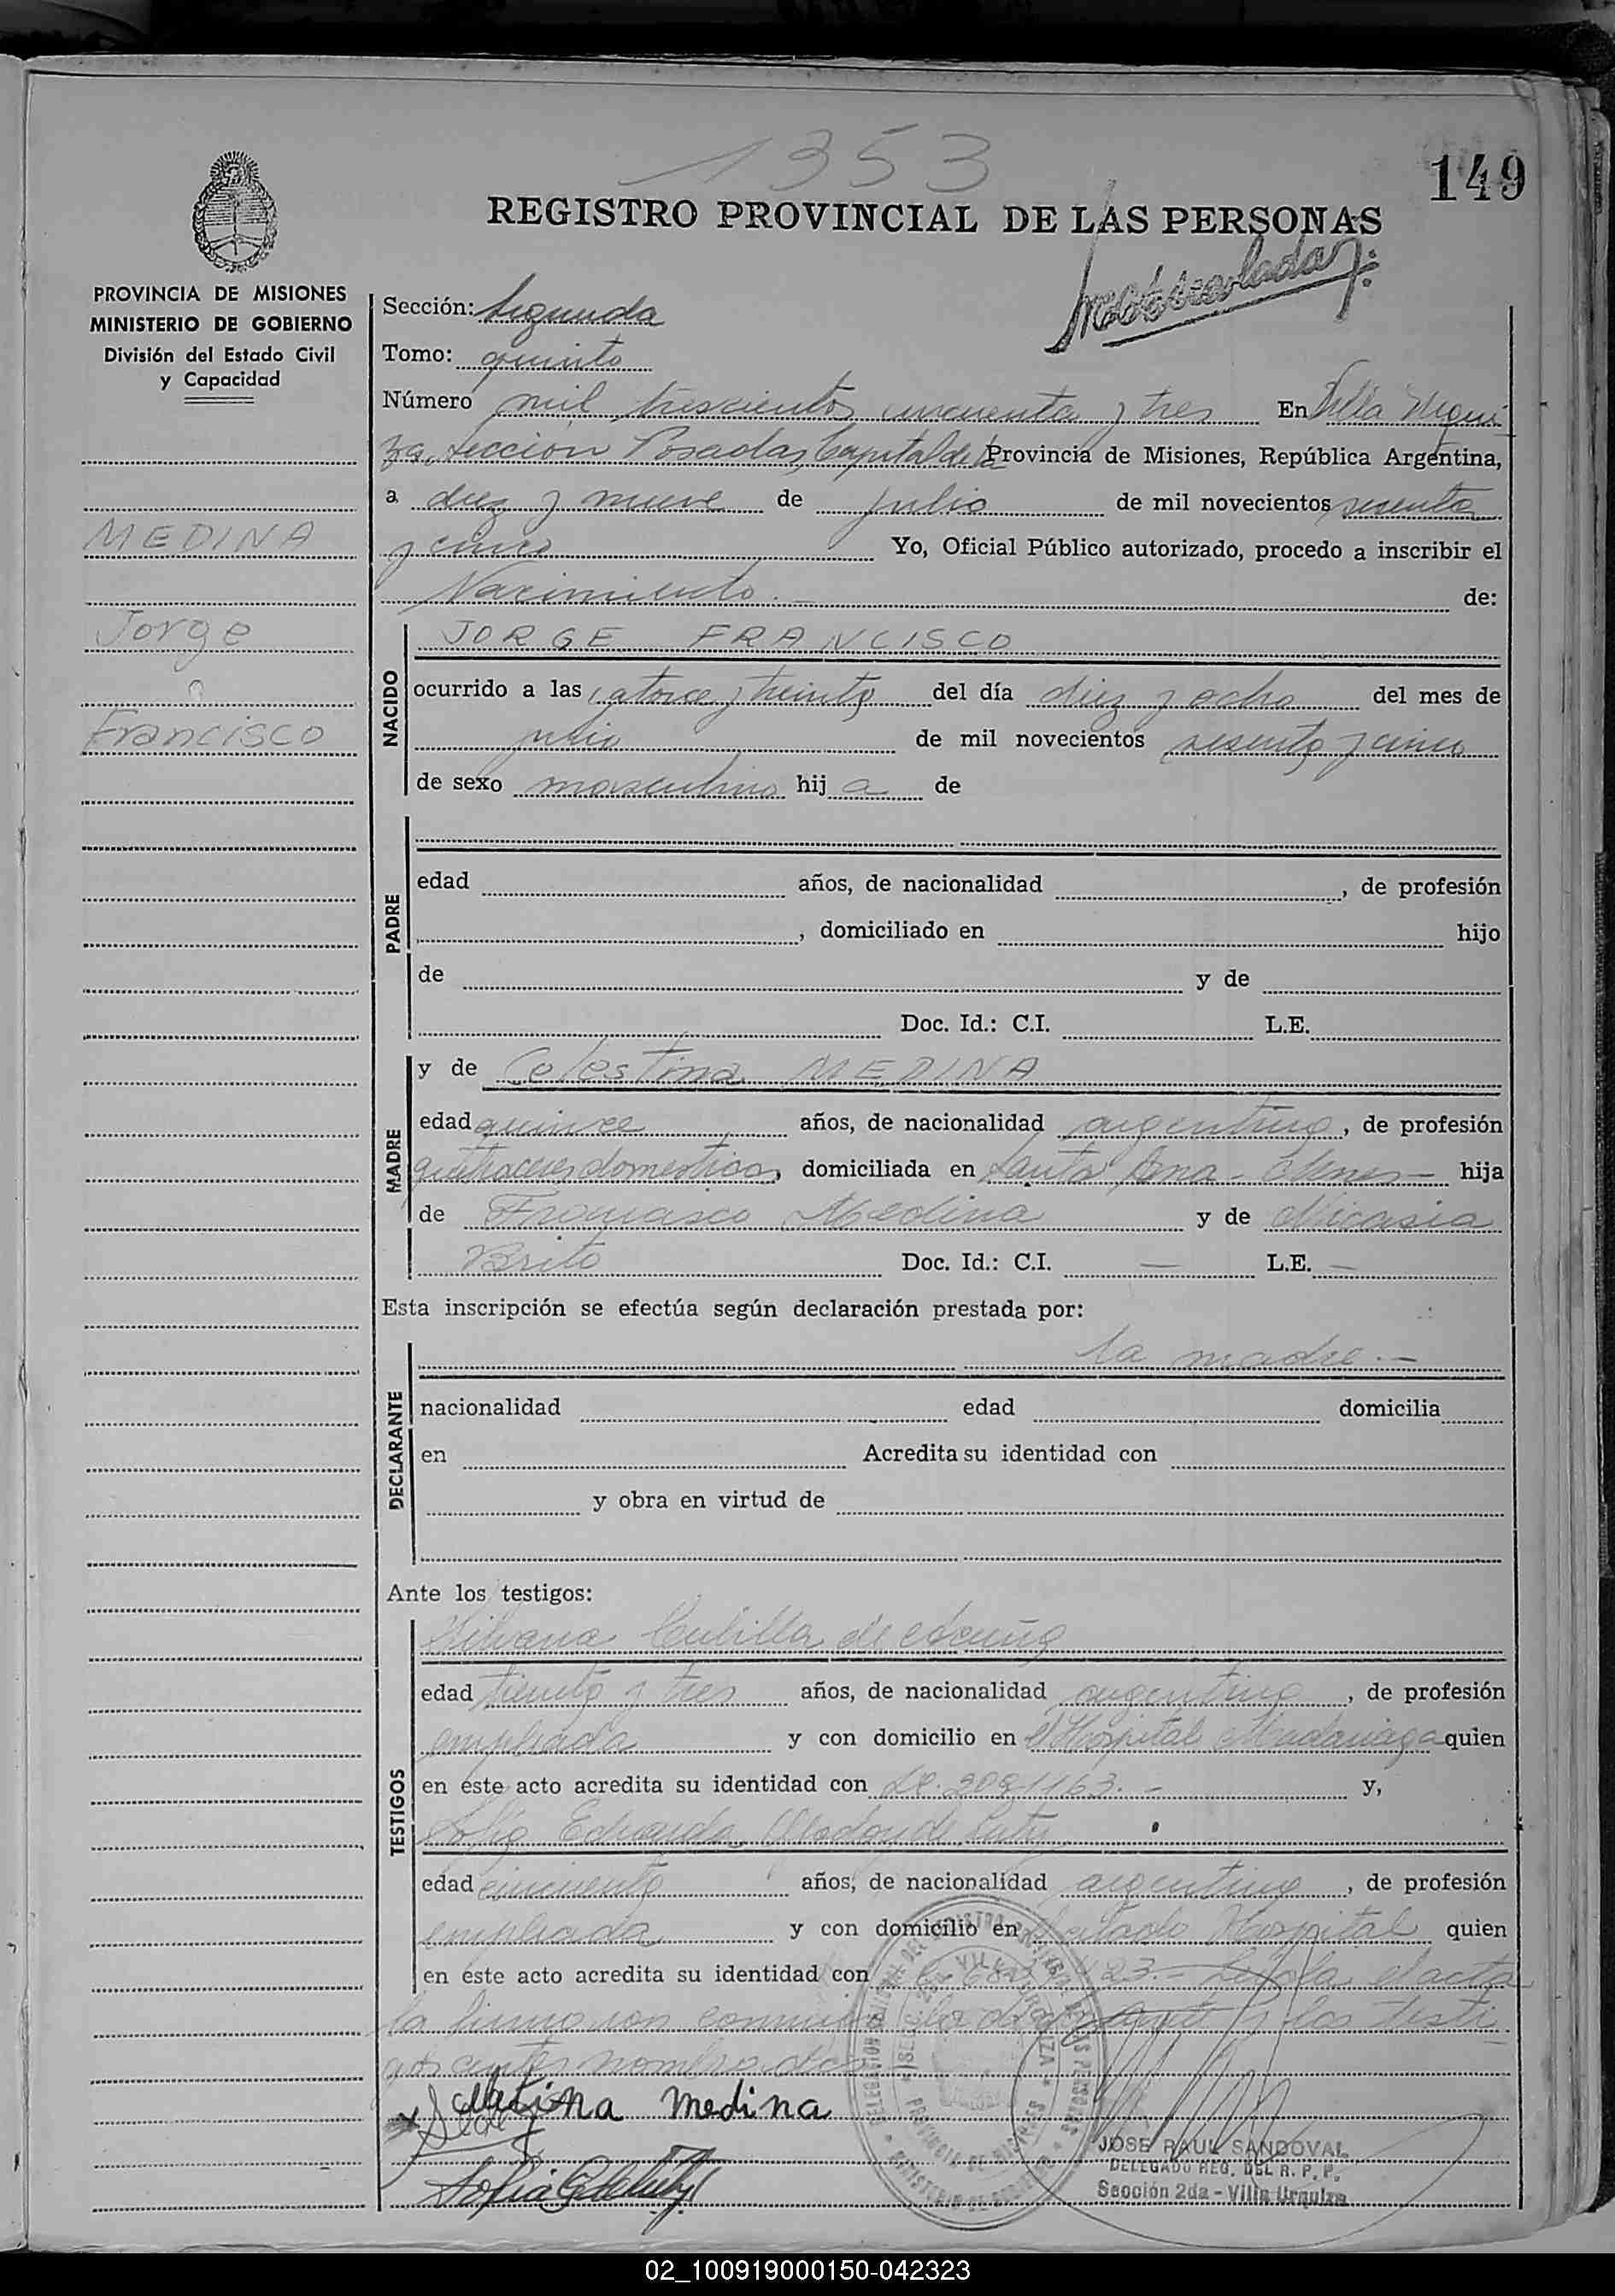 1353
149
REGISTRO PROVINCIAL DE LAS PERSONAS
PROVINCIA DE MISIONES
MINISTERIO DE GOBIERNO
División del Estado Civil
y Capacidad
MEDINA
Jorge
Francisco
Sección: Segunda
Tomo: quinto
Número mil trescientos cincuenta y tres En Villa Urqui
za, Sección Posadas, Capital de la Provincia de Misiones, República Argentina,
a diez y nueve de julio de mil novecientos sesenta
y cinco Yo, Oficial Público autorizado, procedo a inscribir el
Nacimiento.— de:
NACIDO
JORGE FRANCISCO
ocurrido a las catorce y treinta del día diez y ocho del mes de
julio de mil novecientos sesenta y cinco
de sexo masculino hij a de
PADRE
edad años, de nacionalidad , de profesión
, domiciliado en hijo
de y de
Doc. Id.: C.I. L.E.
MADRE
y de Celestina MEDINA
edad quince años, de nacionalidad argentina, de profesión
quehaceres domesticos, domiciliada en Santa Ana - Mnes— hija
de Francisco Medina y de Nicasia
Brito Doc. Id.: C.I. — L.E. —
Esta inscripción se efectúa según declaración prestada por:
DECLARANTE
la madre.—
nacionalidad edad domicilia
en Acredita su identidad con
y obra en virtud de
Ante los testigos:
TESTIGOS
Silvana de Acuña
edad treinta y tres años, de nacionalidad argentina, de profesión
empleada y con domicilio en el Hospital Madariaga quien
en este acto acredita su identidad con y,
Sofia Eduarda
edad cincuenta años, de nacionalidad argentina, de profesión
empleada y con domicilio en citado Hospital quien
en este acto acredita su identidad con Leida el acta
la firma con conmigo la y los testi
gos antes nombrados
Celestina Medina
Sofia
JOSE RAUL SANDOVAL
DELEGADO REG. DEL R. P. P.
Sección 2da - Villa Urquiza
02_100919000150-042323